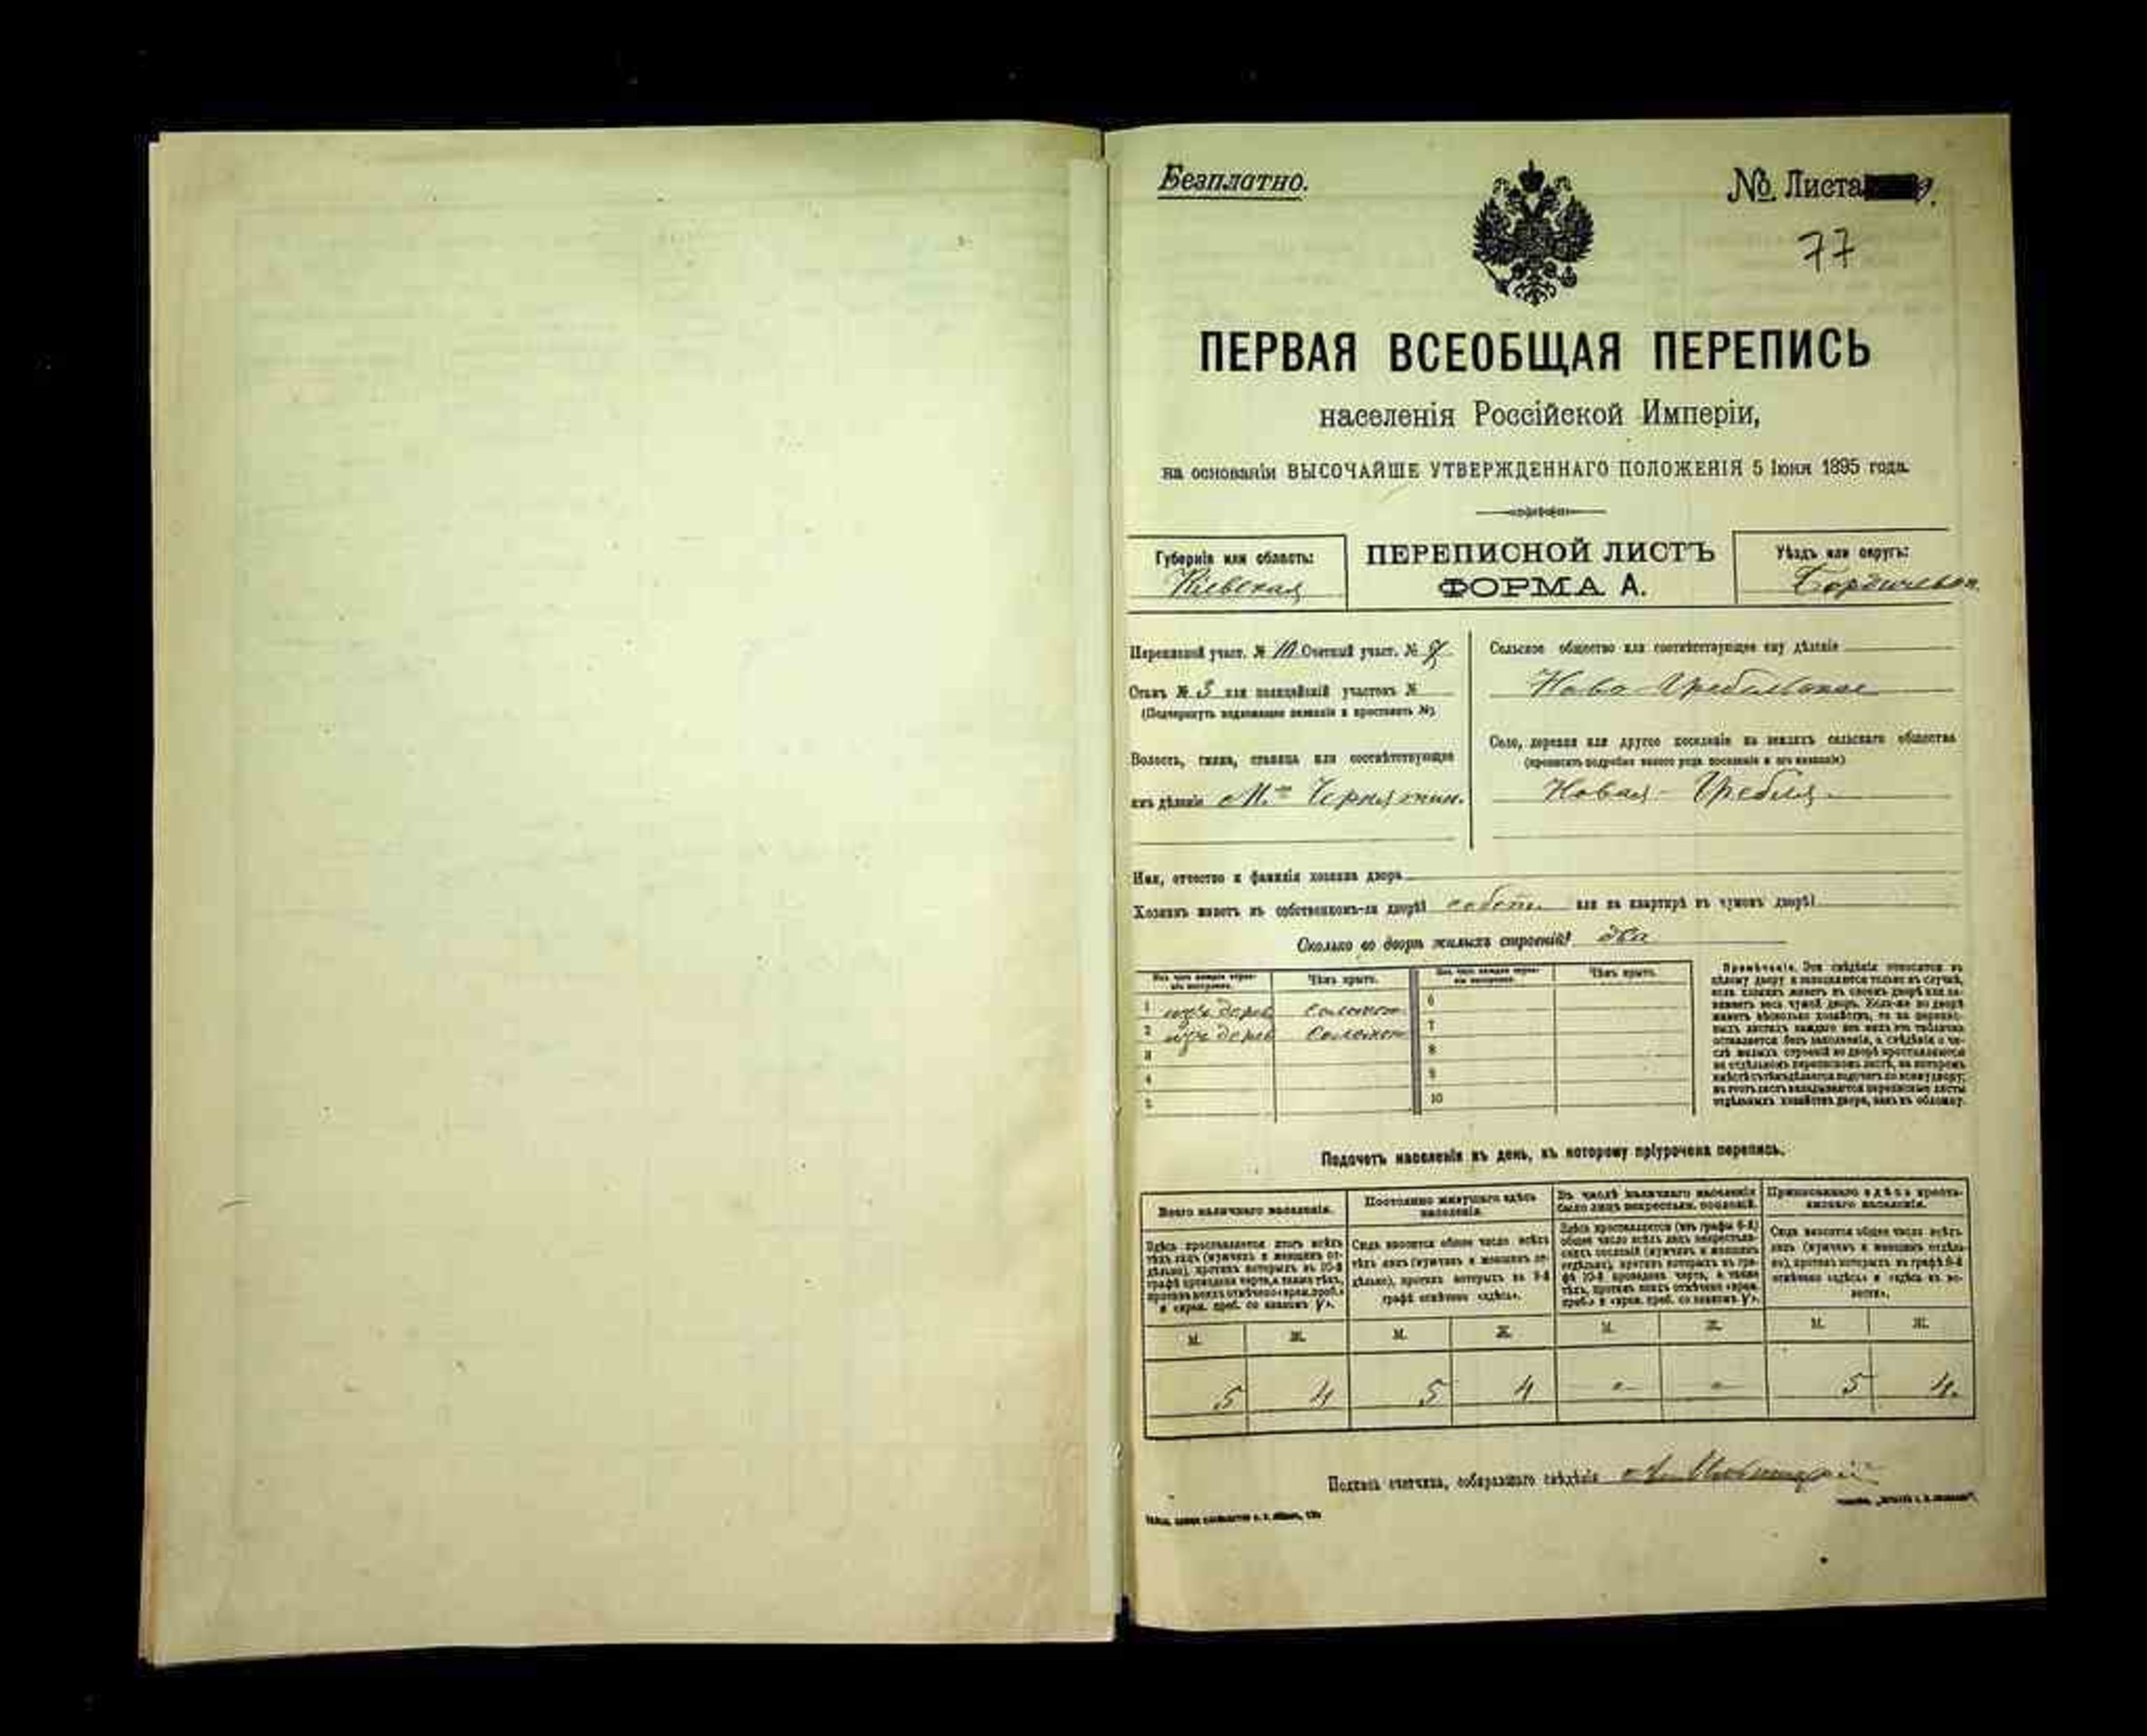 Безплатно.
№ Листа 9.
77
ПЕРВАЯ ВСЕОБЩАЯ ПЕРЕПИСЬ
населенія Россійской Имперіи,
на основаніи ВЫСОЧАЙШЕ УТВЕРЖДЕННАГО ПОЛОЖЕНІЯ 5 Іюня 1895 года.
Губернія или область:
Кіевская
ПЕРЕПИСНОЙ ЛИСТЪ
ФОРМА А.
Уѣздъ или округъ:
Переписной участ. № 10 Счетный участ. №
Станъ № 3 или полицейскій участокъ №
(Подчеркнуть надлежащее названіе и проставить №)
Волость, гмина, станица или соотвѣтствующее
имъ дѣленіе М. Чернятин.
Сельское общество или соотвѣтствующее ему дѣленіе
Ново-Гребельское
Село, деревня или другое поселеніе на земляхъ сельскаго общества
(прописать подробно какого рода поселеніе и его названіе)
Новая-Гребля
Имя, отчество и фамилія хозяина двора
Хозяинъ живетъ въ собственномъ-ли дворѣ? собств. или на квартирѣ въ чужомъ дворѣ?
Сколько во дворѣ жилыхъ строеній? два
Изъ чего каждое строеніе построено.
Чѣмъ крыто.
Изъ чего каждое строеніе построено.
Чѣмъ крыто.
1 изъ дерев соломою 6
2 изъ дерев соломою 7
3 8
4 9
5 10
Примѣчаніе. Эти свѣдѣнія относятся къ
цѣлому двору и заполняются только въ случаѣ,
если хозяинъ живетъ въ своемъ дворѣ или за-
нимаетъ весь чужой дворъ. Если-же во дворѣ
живетъ нѣсколько хозяйствъ, то на перепис-
ныхъ листахъ каждаго изъ нихъ эта табличка
оставляется безъ заполненія, а свѣдѣнія о чи-
слѣ жилыхъ строеній во дворѣ проставляются
на отдѣльномъ переписномъ листѣ, на которомъ
вмѣстѣ съ тѣмъ дѣлается подсчетъ по всему двору;
въ этотъ листъ вкладываются переписные листы
отдѣльныхъ хозяйствъ двора, какъ въ обложку.
Подсчетъ населенія къ день, къ которому пріурочена перепись.
Всего наличнаго населенія.
Постоянно живущаго здѣсь
населенія.
Въ числѣ наличнаго населенія
было лицъ некрестьян. сословій.
Приписаннаго здѣсь кресть-
янскаго населенія.
Здѣсь проставляется итогъ всѣхъ
тѣхъ лицъ (мужчинъ и женщинъ от-
дѣльно), противъ которыхъ въ 10-й
графѣ проведена черта, а также тѣхъ,
противъ коихъ отмѣчено «врем. преб.»
и «врем. преб. со знакомъ V».
Сюда вносится общее число всѣхъ
тѣхъ лицъ (мужчинъ и женщинъ от-
дѣльно), противъ которыхъ въ 9-й
графѣ отмѣчено «здѣсь».
Здѣсь проставляется (изъ графы 6-й)
общее число всѣхъ лицъ некрестьян-
скихъ сословій (мужчинъ и женщинъ
отдѣльно), противъ которыхъ въ гра-
фѣ 10-й проведена черта, а также
тѣхъ, противъ коихъ отмѣчено «врем.
преб.» и «врем. преб. со знакомъ V».
Сюда вносится общее число всѣхъ
лицъ (мужчинъ и женщинъ отдѣль-
но), противъ которыхъ въ графѣ 8-й
отмѣчено «здѣсь» и «здѣсь въ во-
лости».
М. Ж. М. Ж. М. Ж. М. Ж.
5 4 5 4 - - 5 4.
Подпись счетчика, собиравшаго свѣдѣнія